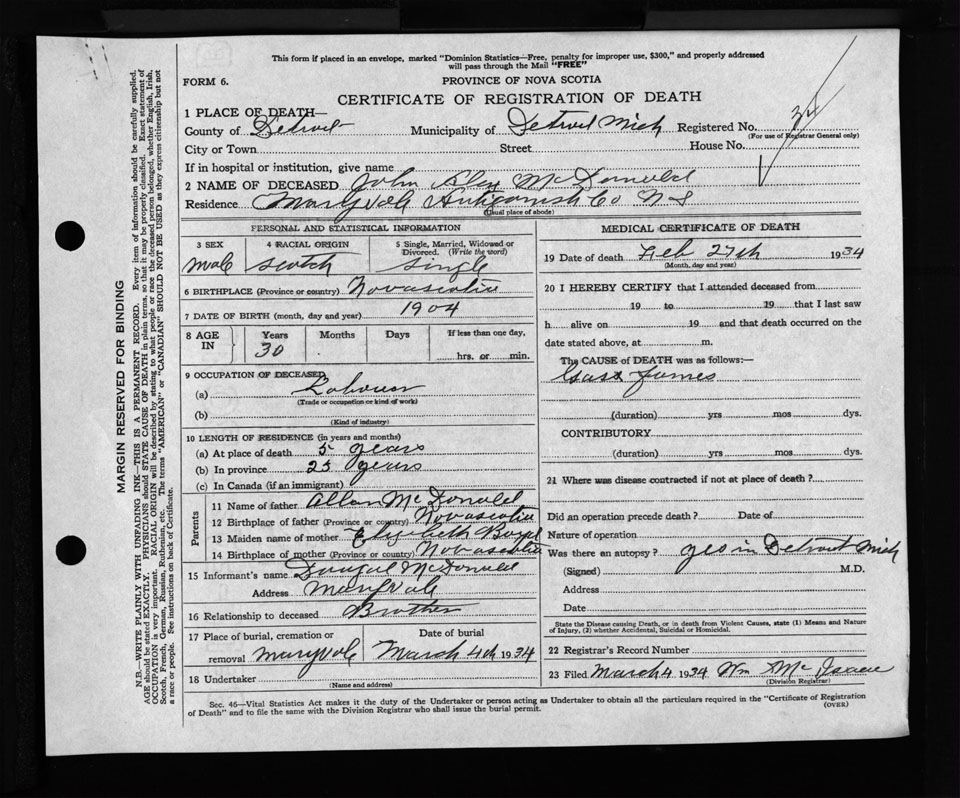 This form if placed in an envelope, marked "Dominion Statistics—Free, penalty for improper use, $300," and properly addressed
will pass through the Mail "FREE"
FORM 6. PROVINCE OF NOVA SCOTIA
CERTIFICATE OF REGISTRATION OF DEATH
1 PLACE OF DEATH—
County of Detroit Municipality of Detroit Mich Registered No. 34
(For use of Registrar General only)
City or Town Street House No.
If in hospital or institution, give name
2 NAME OF DECEASED John Alex McDonald
Residence Maryvale Antigonish Co N S
(Usual place of abode)
PERSONAL AND STATISTICAL INFORMATION
3 SEX 4 RACIAL ORIGIN 5 Single, Married, Widowed or Divorced. (Write the word)
Male Scotch Single
6 BIRTHPLACE (Province or country) Novascotia
7 DATE OF BIRTH (month, day and year) 1904
8 AGE IN Years Months Days If less than one day,
30 hrs. or min.
9 OCCUPATION OF DECEASED
(a) Labourer
(Trade or occupation or kind of work)
(b)
(Kind of industry)
10 LENGTH OF RESIDENCE (in years and months)
(a) At place of death 5 years
(b) In province 25 years
(c) In Canada (if an immigrant)
Parents
11 Name of father Allan McDonald
12 Birthplace of father (Province or country) Novascotia
13 Maiden name of mother Elizabeth Boyd
14 Birthplace of mother (Province or country) Novascotia
15 Informant's name Dougal McDonald
Address Maryvale
16 Relationship to deceased Brother
17 Place of burial, cremation or removal Maryvale Date of burial March 4th 1934
18 Undertaker
(Name and address)
MEDICAL CERTIFICATE OF DEATH
19 Date of death Feb 27th 1934
(Month, day and year)
20 I HEREBY CERTIFY that I attended deceased from
19 to 19 that I last saw
h alive on 19 and that death occurred on the
date stated above, at m.
The CAUSE of DEATH was as follows:—
Gass fumes
(duration) yrs mos dys.
CONTRIBUTORY
(duration) yrs mos dys.
21 Where was disease contracted if not at place of death?
Did an operation precede death? Date of
Nature of operation
Was there an autopsy? yes in Detroit Mich
(Signed) M.D.
Address
Date
State the Disease causing Death, or in death from Violent Causes, state (1) Means and Nature
of Injury, (2) whether Accidental, Suicidal or Homicidal.
22 Registrar's Record Number
23 Filed March 4 1934 Wm Mc
(Division Registrar)
Sec. 46—Vital Statistics Act makes it the duty of the Undertaker or person acting as Undertaker to obtain all the particulars required in the "Certificate of Registration
of Death" and to file the same with the Division Registrar who shall issue the burial permit. (OVER)
MARGIN RESERVED FOR BINDING
N.B.—WRITE PLAINLY WITH UNFADING INK—THIS IS A PERMANENT RECORD. Every item of information should be carefully supplied.
AGE should be stated EXACTLY. PHYSICIANS should STATE CAUSE OF DEATH in plain terms, so that it may be properly classified. Exact statement of
OCCUPATION is very important. RACIAL ORIGIN will be described by stating to what people or race the deceased person belonged, whether English, Irish,
Scotch, French, German, Russian, Ruthenian, etc. The terms "AMERICAN" or "CANADIAN" SHOULD NOT BE USED as they express citizenship but not
a race or people. See instructions on back of Certificate.